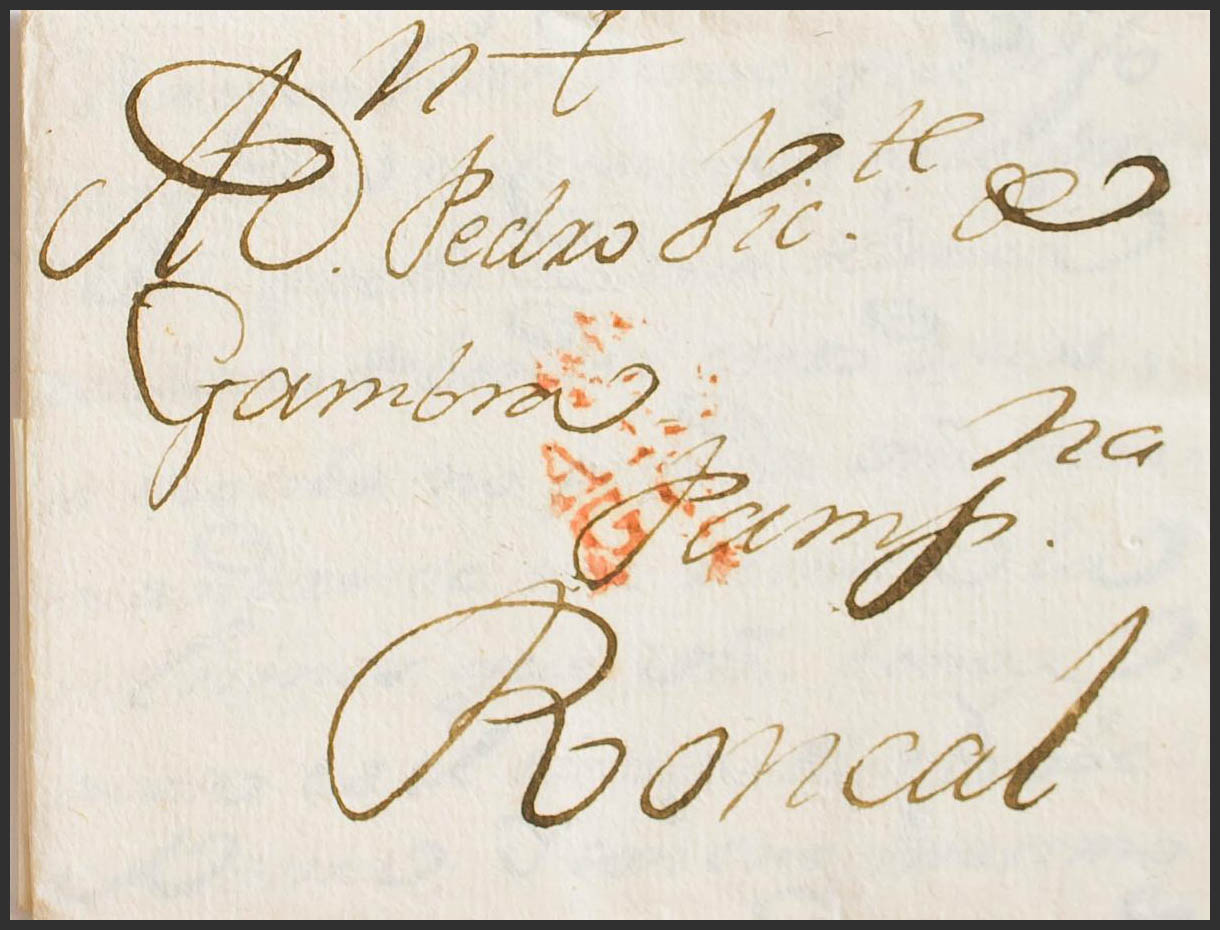 nt
A D. Pedro Vic.te de
Gambra
Pamp.na
Roncal